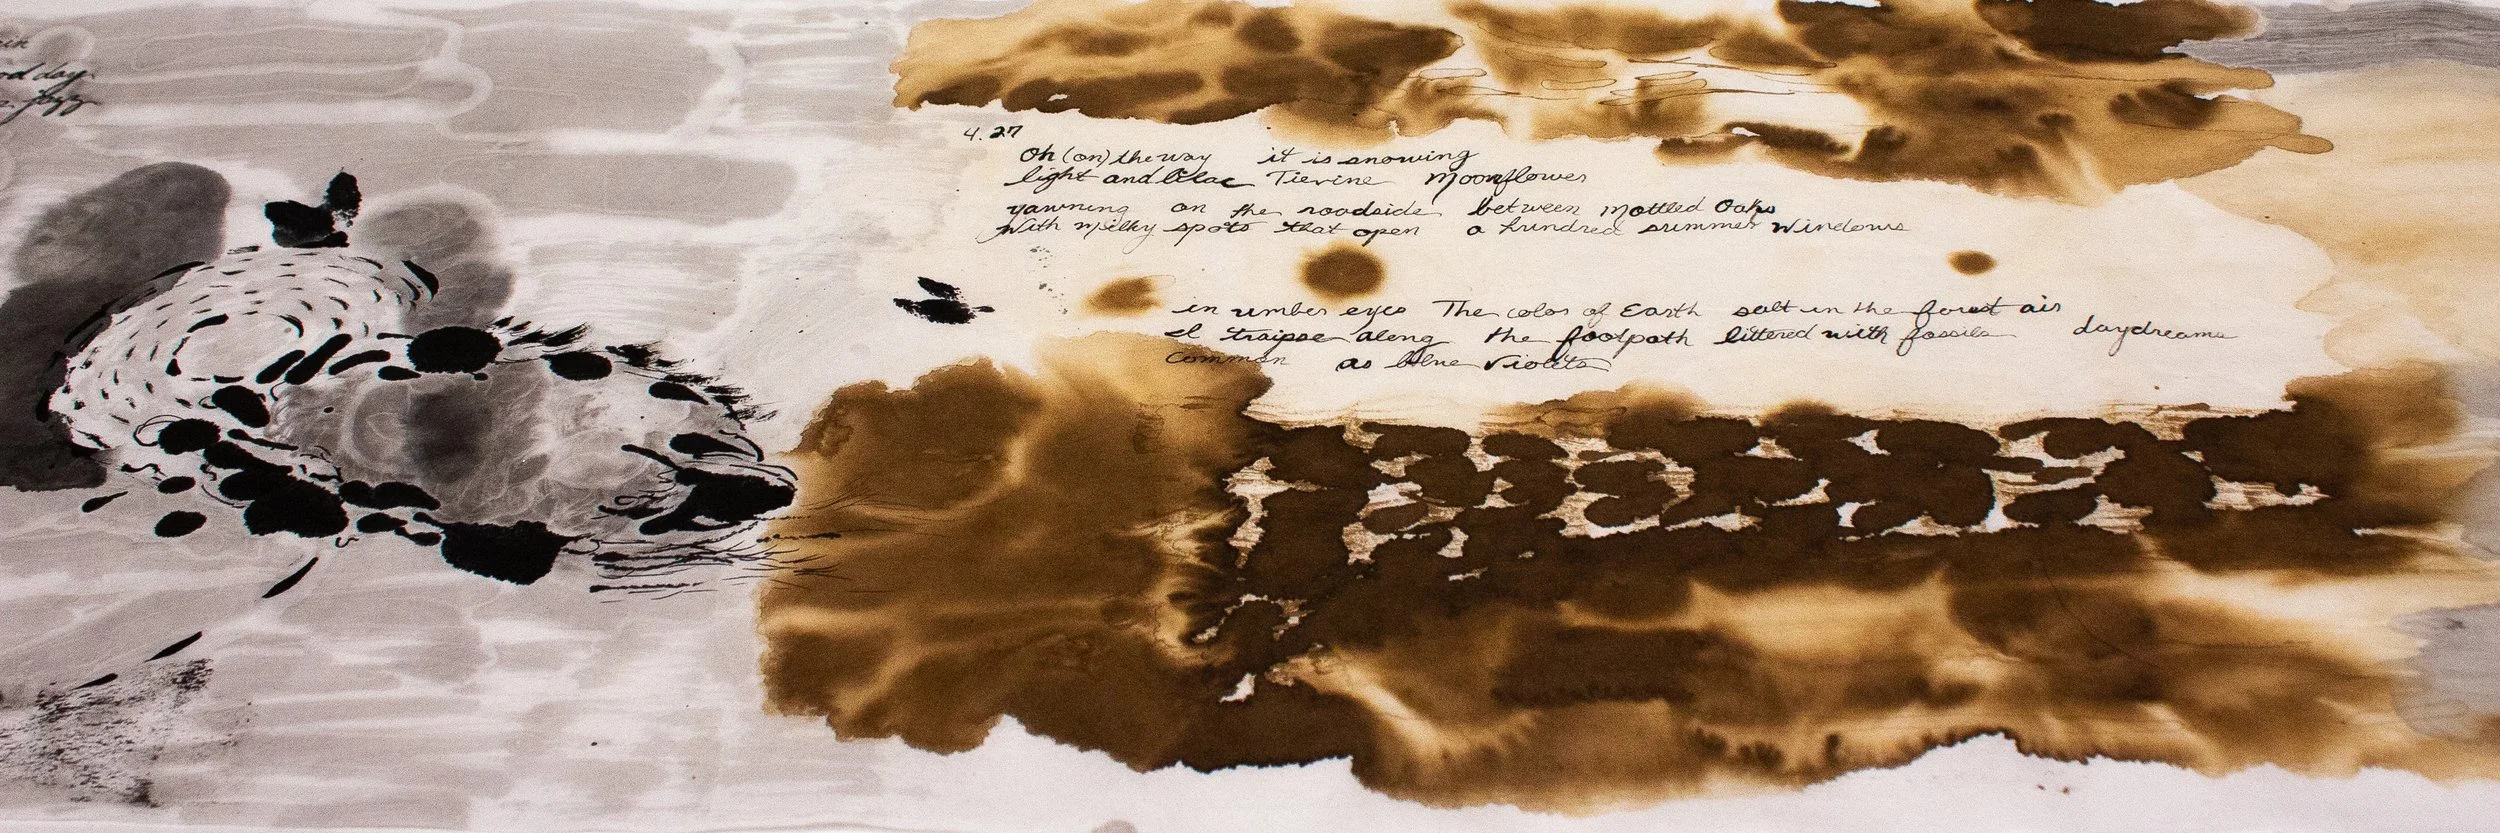 od day
4.27
Oh (on) the way it is snowing
light and lilac Tievine Moonflower
yawning on the roadside between mottled Oaks
With milky spots that open a hundred summer windows
in umber eyes The color of Earth salt in the forest air
I traipse along the footpath littered with fossils daydreams
Common as blue violets